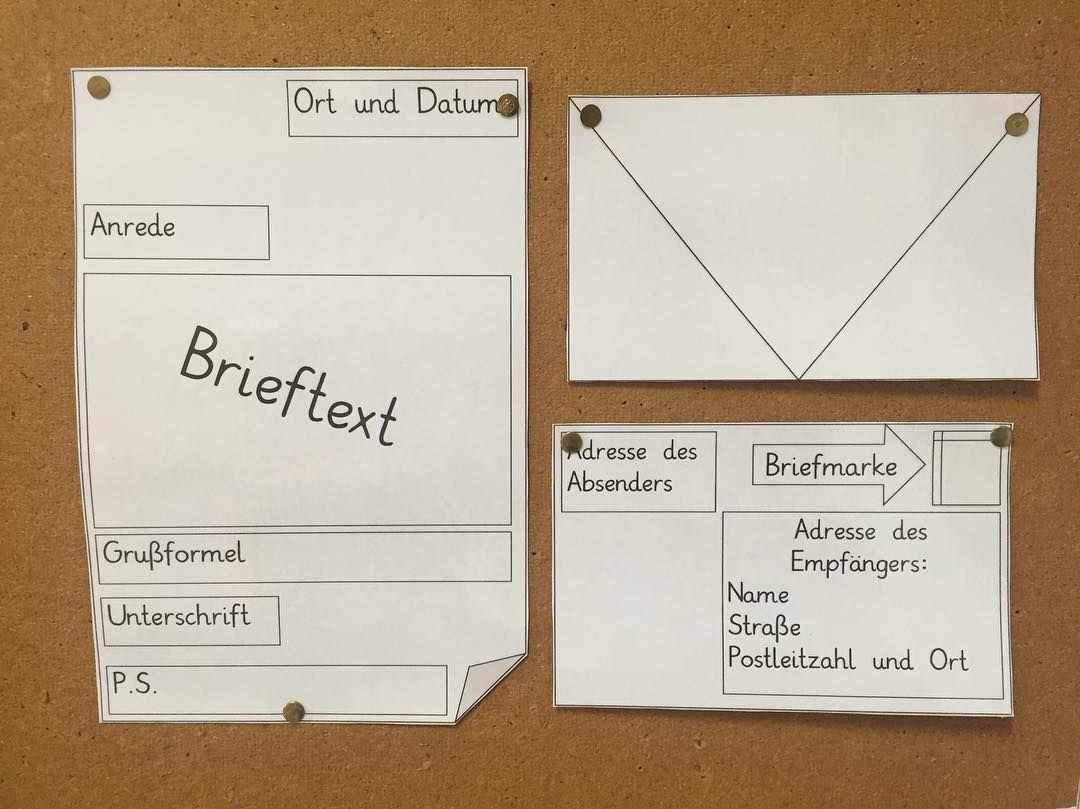 Ort und Datum
Anrede
Brieftext
Grußformel
Unterschrift
P.S.
Adresse des
Absenders
Briefmarke
Adresse des
Empfängers:
Name
Straße
Postleitzahl und Ort